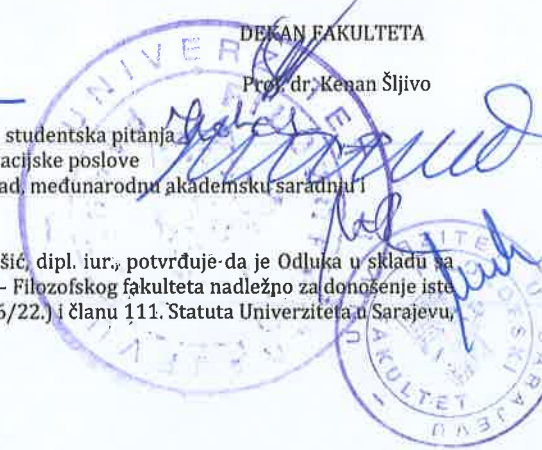 DEKAN FAKULTETA
Prof. dr. Kenan Šljivo
studentska pitanja
acijske poslove
ad, međunarodnu akademsku saradnju i
šić, dipl. iur., potvrđuje da je Odluka u skladu sa
– Filozofskog fakulteta nadležno za donošenje iste
6/22.) i članu 111. Statuta Univerziteta u Sarajevu,
UNIVERZITET
FAKULTET
SARAJEVU